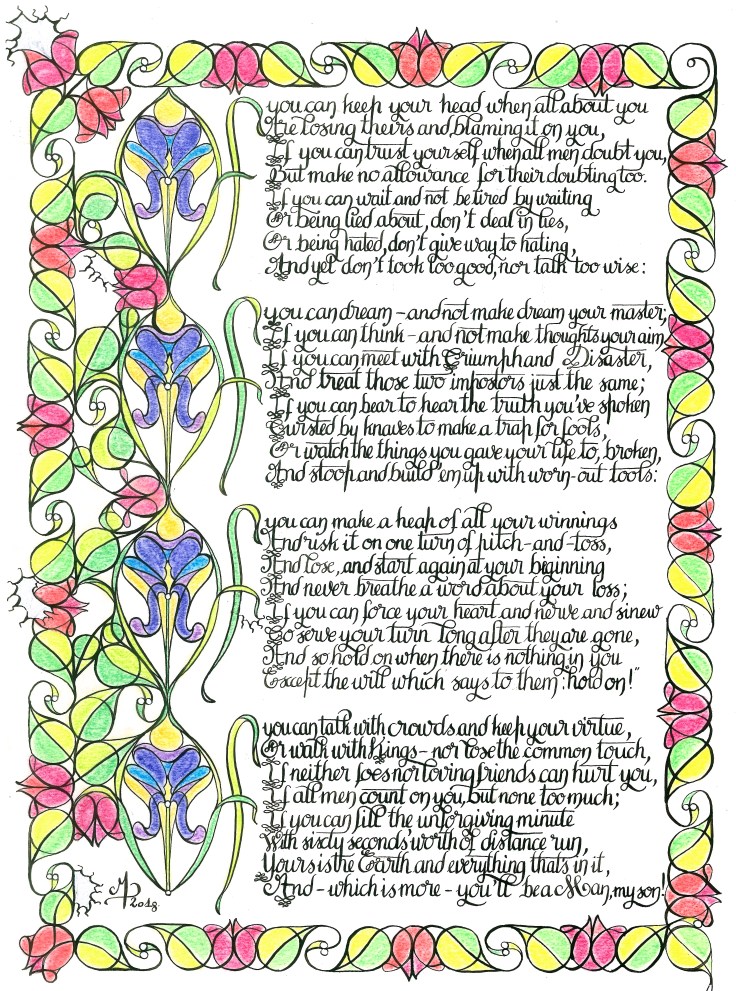 If you can keep your head when all about you
Are losing theirs and blaming it on you,
If you can trust yourself when all men doubt you,
But make no allowance for their doubting too.
If you can wait and not be tired by waiting
Or being lied about, don't deal in lies,
Or being hated, don't give way to hating,
And yet don't look too good, nor talk too wise:
If you can dream - and not make dream your master;
If you can think - and not make thoughts your aim
If you can meet with Triumph and Disaster,
And treat those two impostors just the same;
If you can bear to hear the truth you've spoken
Twisted by knaves to make a trap for fools,
Or watch the things you gave your life to, broken,
And stoop and build 'em up with worn-out tools:
If you can make a heap of all your winnings
And risk it on one turn of pitch-and-toss,
And lose, and start again at your biginning
And never breathe a word about your loss;
If you can force your heart and nerve and sinew
To serve your turn long after they are gone,
And so hold on when there is nothing in you
Except the will which says to them: "hold on!"
If you can talk with crowds and keep your virtue,
Or walk with Kings - nor lose the common touch,
If neither foes nor loving friends can hurt you,
If all men count on you, but none too much;
If you can fill the unforgiving minute
With sixty seconds' worth of distance run,
Yours is the Earth and everything that's in it,
And - which is more - you'll be a Man, my son!
2018